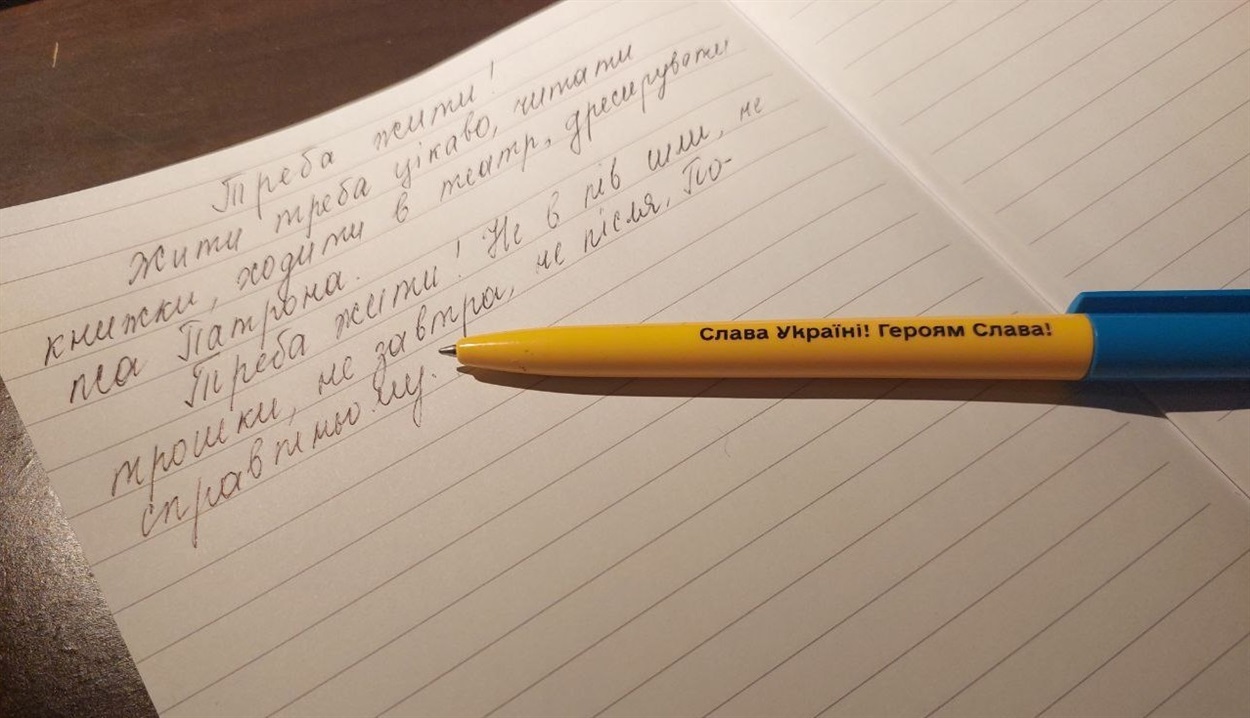 Треба жити!
Жити треба цікаво, читати
книжки, ходити в театр, дресирувати
пса Патрона.
Треба жити! Не в пів шли, не
трошки, не завтра, не після. По-
справжньому.
Слава Україні! Героям Слава!